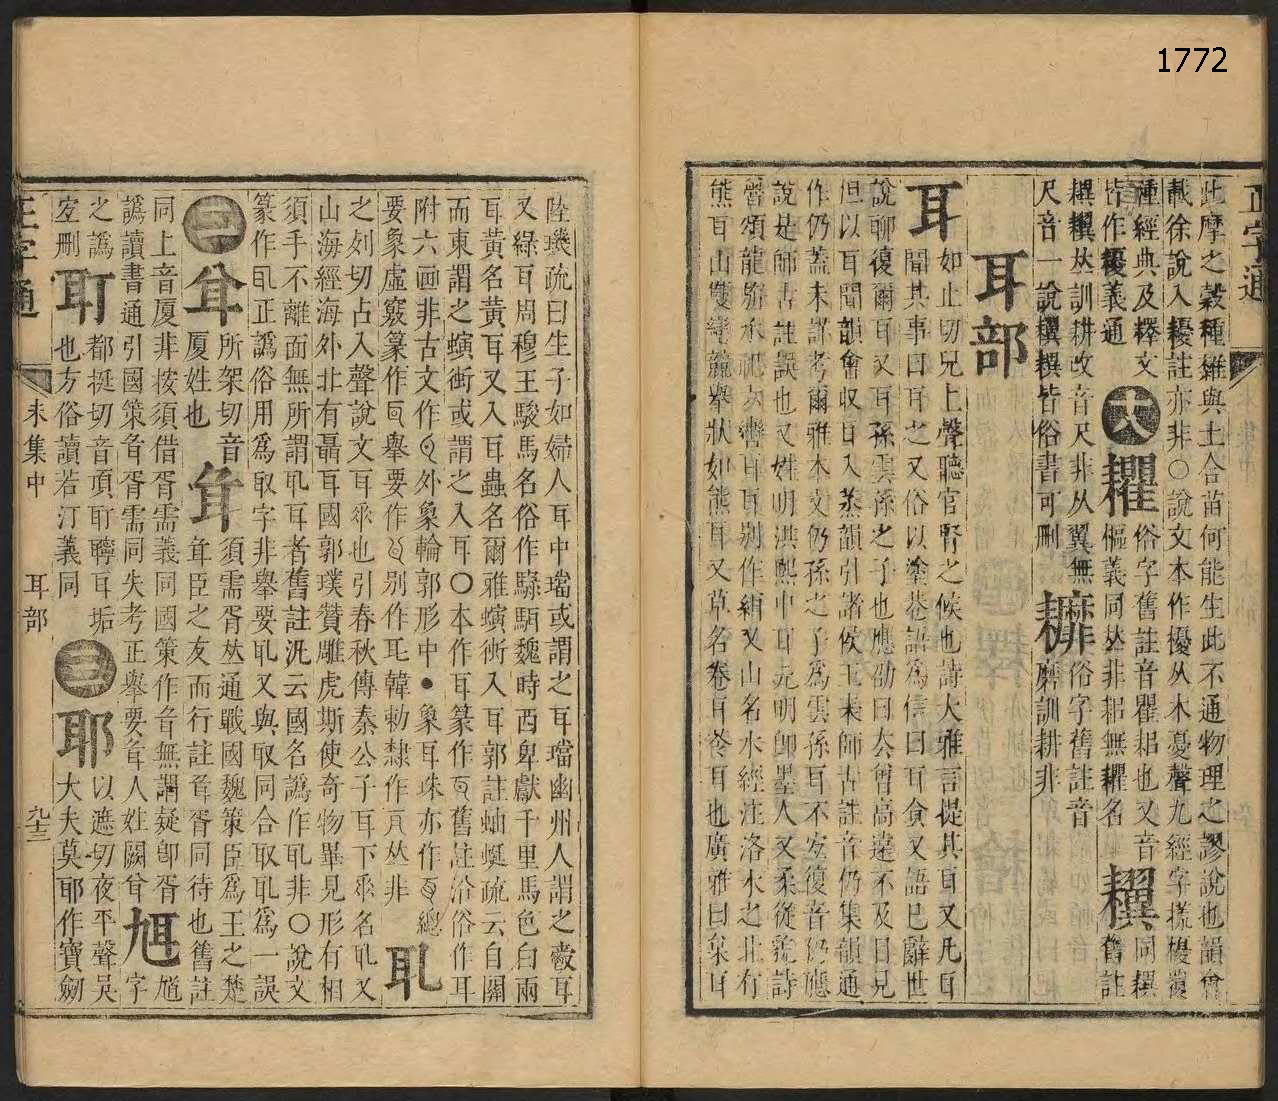 1772
正字通
此摩之穀種雖與土合苗何能生此不通物理之謬說也韻會
載徐說入耰註亦非○說文本作櫌从木憂聲九經字㨾櫌覆
種經典及釋文皆作耰義通
十八
耀俗字舊註音瞿耜也又音傴義同𠀤非耜無名
同耀舊註𠀤訓耕改音尺非从翼無尺音一說皆俗書可刪
俗字舊註音磨訓耕非
耳部
耳
如止切兒上聲聽官腎之候也詩大雅言提其耳又凡耳
聞其事曰耳之又俗以塗巷語為信曰耳食又語巳辭世
說聊復爾耳又耳孫雲孫之子也應劭曰去曾高遠不及目見
但以耳聞韻會收耳入蒸韻引諸侯王表師古註音仍集韻通
作仍蓋未詳考爾雅本文仍孫之子為雲孫耳不宐復音仍應
說是師古註誤也又姓明洪熙中耳元明卽墨人又柔從貌詩
魯頌龍旂承祀六轡耳耳別作緷又山名水經注洛水之北有
熊耳山雙巒競舉狀如熊耳又草名卷耳苓耳也廣雅曰枲耳
陸璣疏曰生子如婦人耳中璫或謂之耳璫幽州人謂之爵耳
又綠耳周穆王駿馬名俗作騄駬魏時西卑獻千里馬色白兩
耳黃名黃耳又入耳蟲名爾雅螾衎入耳郭註蚰蜒疏云自關
而東謂之螾衎或謂之入耳○本作耳篆作舊註沿俗作耳
附六画非古文作外象輪郭形中●象耳珠亦作總
要象虛竅篆作舉要作別作韓勅隸作𠀤非
耴
之夘切占入聲說文耳𠂹也引春秋傳秦公子耳下𠂹名耴又
山海經海外北有聶耳國郭璞贊雕虎斯使奇物畢見形有相
須手不離面無所謂耴耳者舊註汎云國名譌作耴非○說文
篆作正譌俗用為取字非舉要耴又與取同合取耴為一誤
二
所架切音厦姓也
須需胥𠀤通戰國魏策臣為王之楚
臣之友而行註胥同待也舊註
同上音厦非按須借胥需義同國策作無謂疑卽胥
譌讀書通引國策胥需同失考正舉要人姓闕
字之譌宐刪
耵
都挺切音頂耵聹耳垢也方俗讀若汀義同
三
耶
以遮切夜平聲吳大夫莫耶作寶劒
正字通
未集中
耳部
九十三